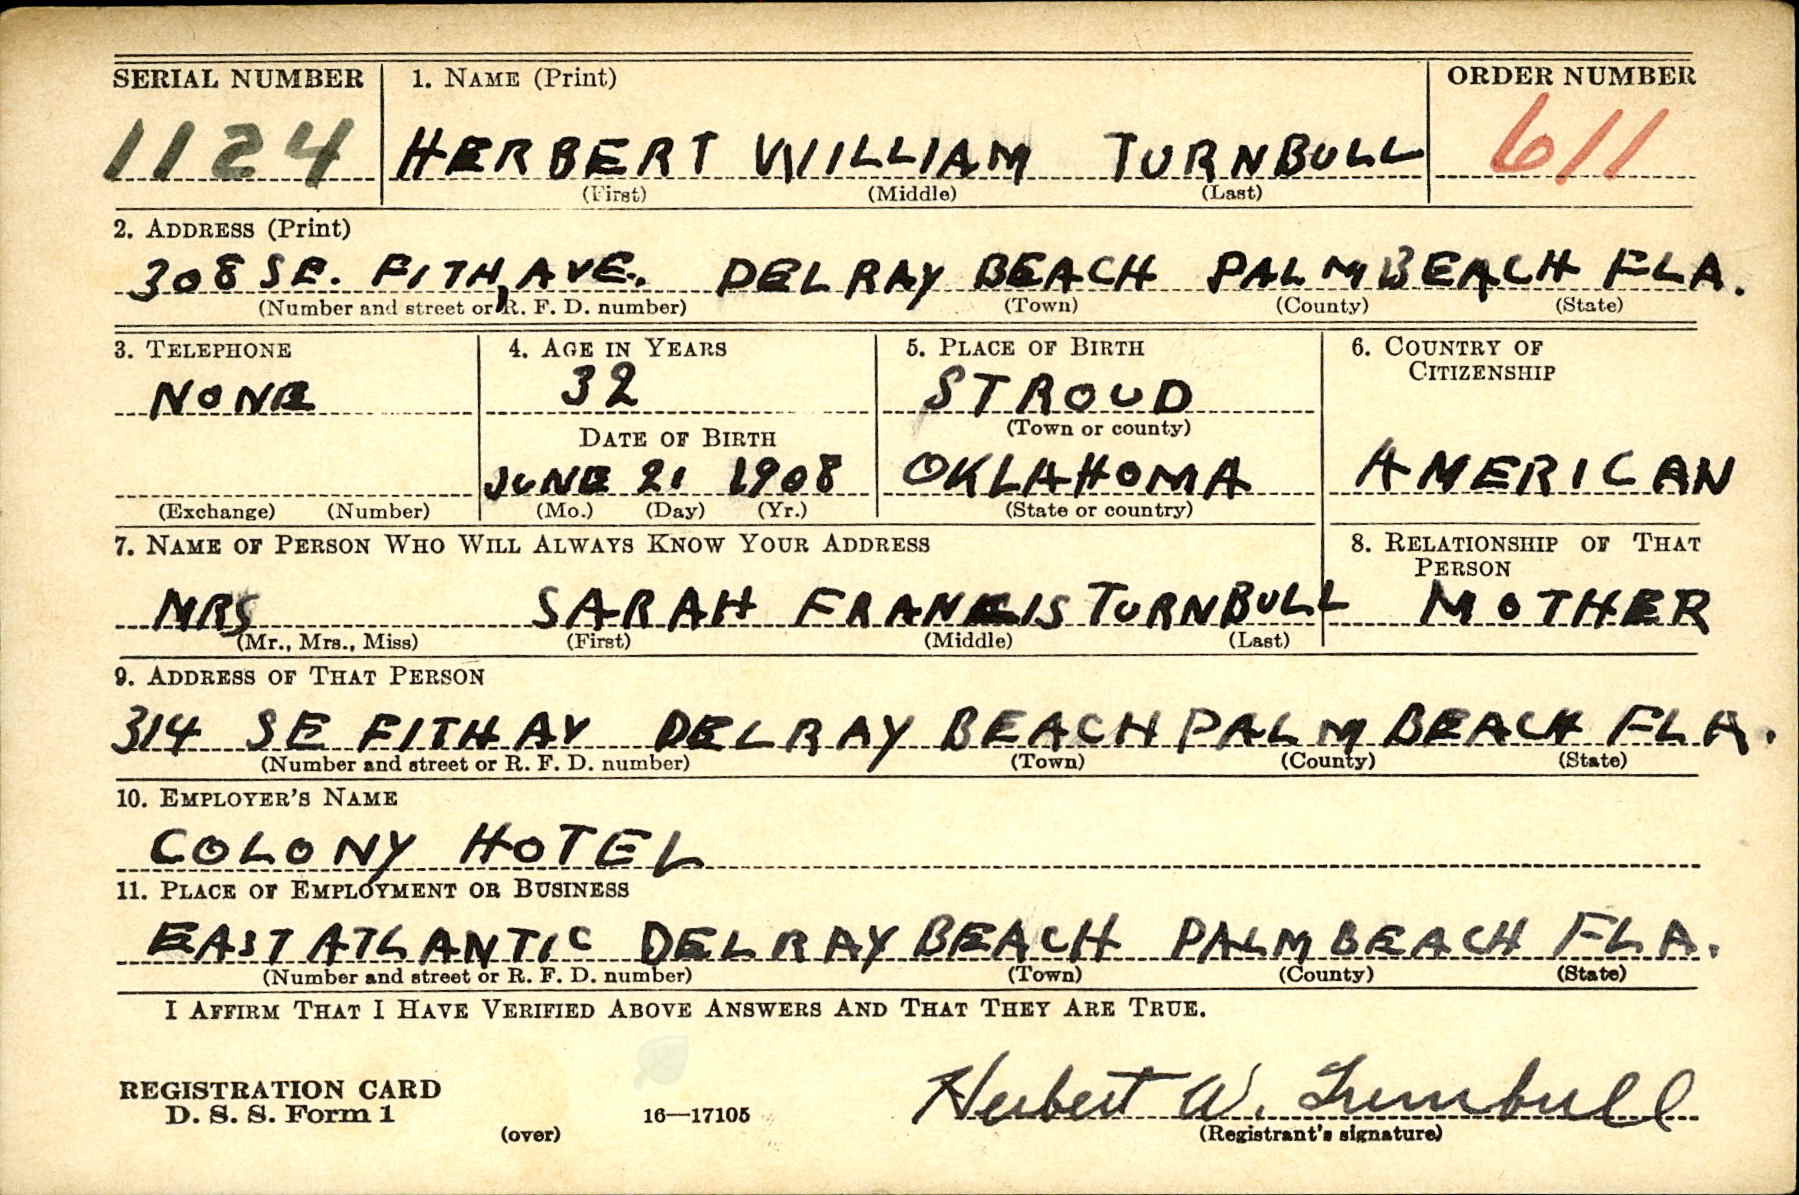 SERIAL NUMBER 1. NAME (Print) ORDER NUMBER
1124 HERBERT WILLIAM TURNBULL 611
(First) (Middle) (Last)
2. ADDRESS (Print)
308 SE. FITH, AVE. DELRAY BEACH PALM BEACH FLA.
(Number and street or R. F. D. number) (Town) (County) (State)
3. TELEPHONE 4. AGE IN YEARS 5. PLACE OF BIRTH 6. COUNTRY OF
CITIZENSHIP
NONE 32 STROUD
(Town or county)
DATE OF BIRTH
JUNE 21 1908 OKLAHOMA AMERICAN
(Exchange) (Number) (Mo.) (Day) (Yr.) (State or country)
7. NAME OF PERSON WHO WILL ALWAYS KNOW YOUR ADDRESS 8. RELATIONSHIP OF THAT
PERSON
MRS SARAH FRANCIS TURNBULL MOTHER
(Mr., Mrs., Miss) (First) (Middle) (Last)
9. ADDRESS OF THAT PERSON
314 SE FITH AV DELRAY BEACH PALM BEACH FLA.
(Number and street or R. F. D. number) (Town) (County) (State)
10. EMPLOYER'S NAME
COLONY HOTEL
11. PLACE OF EMPLOYMENT OR BUSINESS
EAST ATLANTIC DELRAY BEACH PALM BEACH FLA.
(Number and street or R. F. D. number) (Town) (County) (State)
I AFFIRM THAT I HAVE VERIFIED ABOVE ANSWERS AND THAT THEY ARE TRUE.
REGISTRATION CARD
D. S. S. Form 1 16—17105 Herbert W. Turnbull
(over) (Registrant's signature)